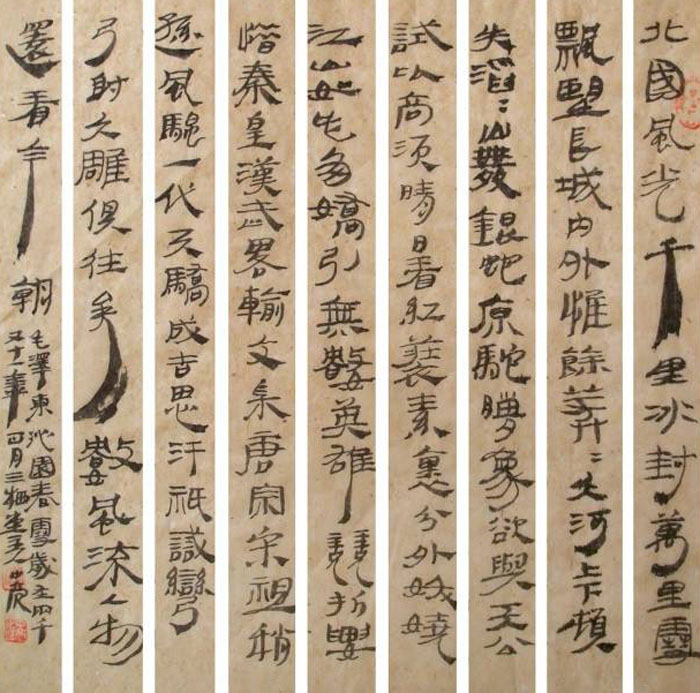 北國風光千里冰封萬里雪
飄望長城內外惟餘莽〻大河上下頓
失滔〻山舞銀蛇原馳蠟象欲與天公
試比高須晴日看紅裝素裹分外妖嬈
江山如此多嬌引無數英雄競折腰
惜秦皇漢武略輸文采唐宗宋祖稍
遜風騷一代天驕成吉思汗祇識彎
弓射大雕俱往矣數風流人物
還看今朝
毛澤東沁園春雪歲在四千
年四月三